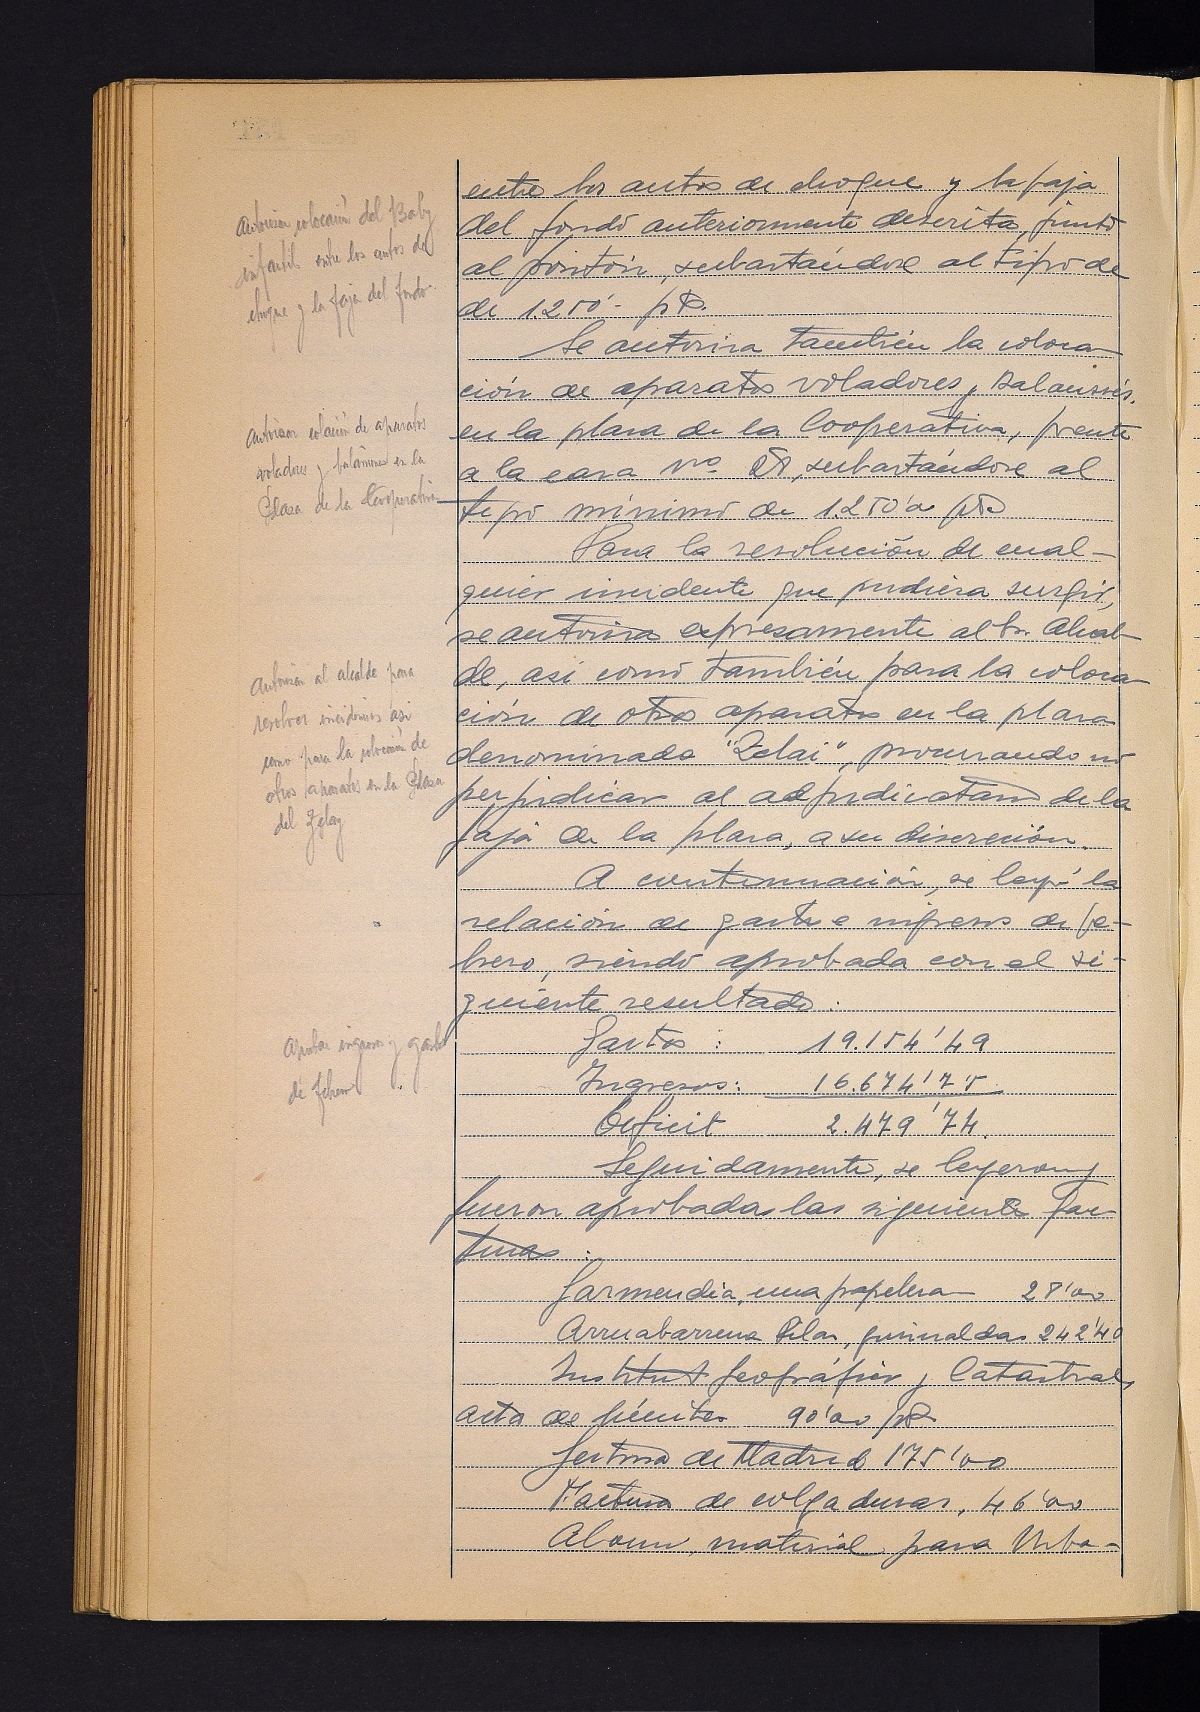 entre los autos de choque y la faja
del fondo anteriormente descrita, junto
al pontón, subastándose al tipo de
de 1250'- pts.
Se autoriza también la coloca-
ción de aparatos voladores y balancines.
en la plaza de la Cooperativa, frente
a la casa nº subastándose al
tipo mínimo de 1250'00 pts
Para la resolución de cual-
quier incidente que pudiera surgir,
se autoriza expresamente al Sr. Alcal-
de, así como también para la coloca-
ción de otros aparatos en la plaza
denominada "Zelai", procurando no
perjudicar al adjudicatario de la
faja de la plaza, a su discreción.
A continuación, se leyó la
relación de gastos e ingresos de fe-
brero, siendo aprobada con el si-
guiente resultado:
Gastos : 19.154'49
Ingresos: 16.674'75
Deficit 2.479'74.
Seguidamente, se leyeron y
fueron aprobadas las siguientes fac-
turas :
Garmendia, una papelera 28'00
Arruabarrena Pilar, guirnaldas 242'40
Instituto Geográfico y Catastral,
acta de límites 90'00 pts
Gestora de Madrid 175'00
Factura de colgaduras, 46'00
material para Urba-
Autorizar colocación del Baby
infantil entre los autos de
choque y la faja del fondo.
Autorizar colación de aparatos
voladores y balancines en la
Plaza de la Cooperativa
Autorizar al alcalde para
resolver incidencias así
como para la colocación de
otros aparatos en la Plaza
del Zelay
Aprobar ingresos y gastos
de febrero